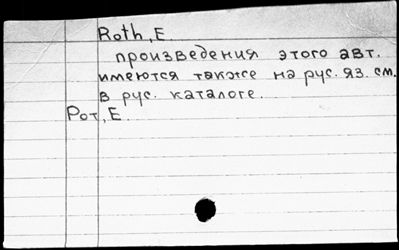 Roth, E.
произведения этого авт.
имеются также на рус. яз. см.
в рус. каталоге.
Рот, Е.